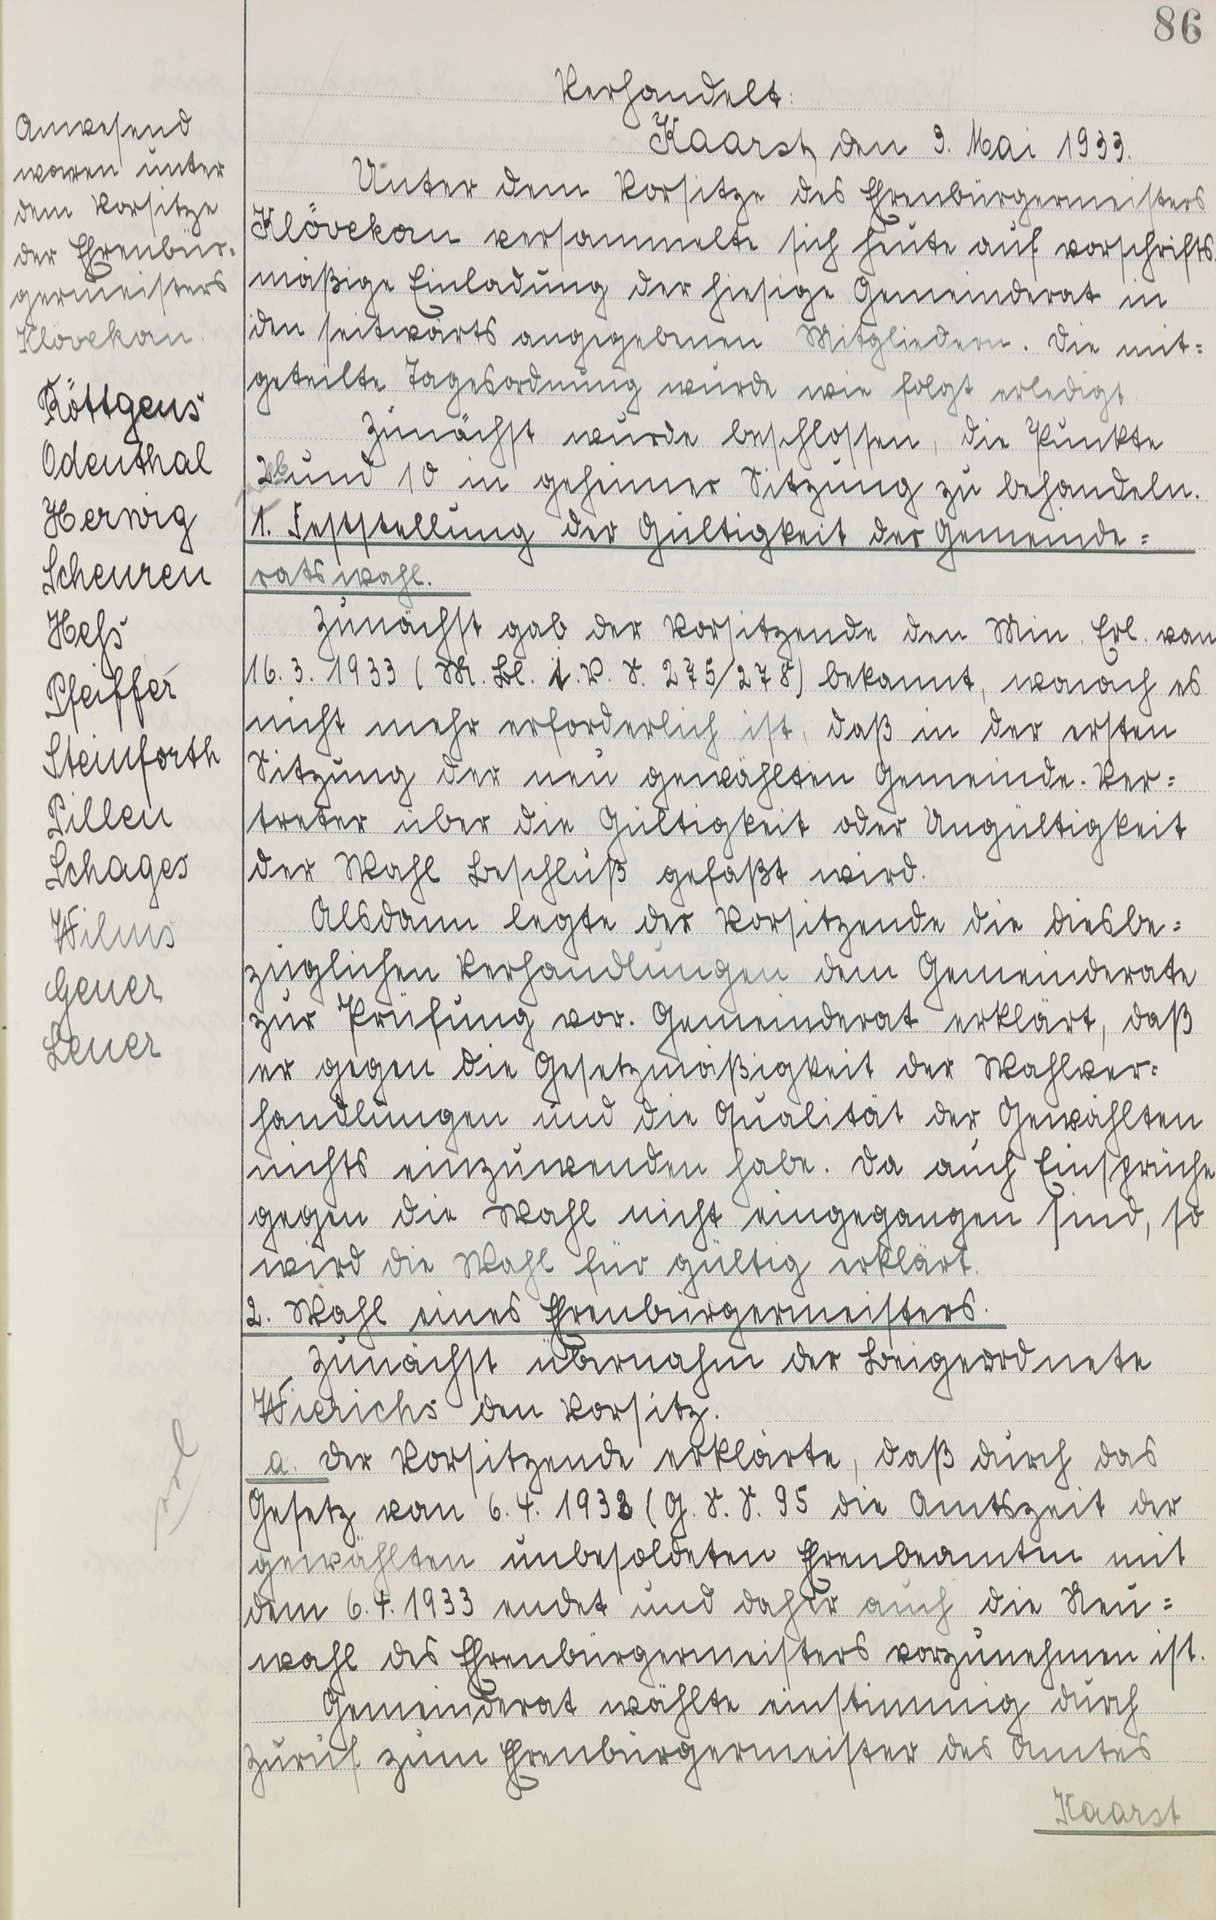 86
Verhandelt:
Kaarst, den 3. Mai 1933.
Anwesend
waren unter
dem Vorsitze
der Ehrenbür=
germeisters
Klövekorn
Köttgens
Odenthal
Herwig
Scheuren
Heß
Pfeiffer
Steinforth
Pillen
Schages
Wilms
Geuer
Leuer
Unter dem Vorsitze des Ehrenbürgermeisters
Klövekorn versammelte sich heute auf vorschrifts
mäßige Einladung der hiesige Gemeinderat in
den seitwärts angegebenen Mitgliedern. Die mit=
geteilte Tagesordnung wurde wie folgt erledigt
Zunächst wurde beschlossen, die Punkte
2b und 10 in geheimer Sitzung zu behandeln.
1. Feststellung der Gültigkeit der Gemeinde=
ratswahl.
Zunächst gab der Vorsitzende den Min. Erl. vom
16. 3. 1933 (M. Bl. i. V. S. 275/278) bekannt, wonach es
nicht mehr erforderlich ist, daß in der ersten
Sitzung der neu gewählten Gemeinde-Ver=
treter über die Gültigkeit oder Ungültigkeit
der Wahl Beschluß gefaßt wird.
Alsdann legte der Vorsitzende die diesbe=
züglichen Verhandlungen dem Gemeinderate
zur Prüfung vor. Gemeinderat erklärt, daß
er gegen die Gesetzmäßigkeit der Wahlver=
handlungen und die Qualität der Gewählten
nichts einzuwenden habe. Da auch Einsprüche
gegen die Wahl nicht eingegangen sind, so
wird die Wahl für gültig erklärt.
2. Wahl eines Ehrenbürgermeisters.
Zunächst übernahm der Beigeordnete
Wierichs den Vorsitz.
a. Der Vorsitzende erklärte, daß durch das
Gesetz vom 6. 4. 1933 (G. S. S. 95 die Amtszeit der
gewählten unbesoldeten Ehrenbeamten mit
dem 6. 4. 1933 endet und daher auch die Neu=
wahl des Ehrenbürgermeisters vorzunehmen ist.
Gemeinderat wählte einstimmig durch
Zuruf zum Ehrenbürgermeister des Amtes
Kaarst